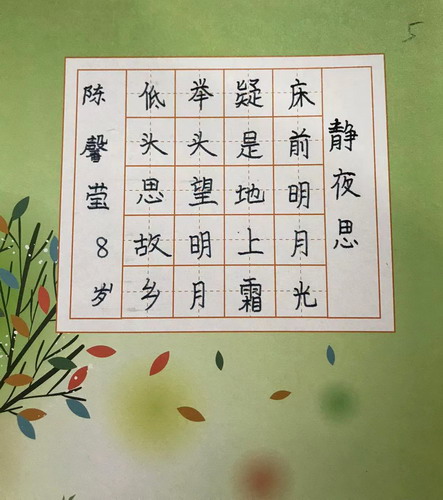 静夜思
床前明月光
疑是地上霜
举头望明月
低头思故乡
陈馨莹8岁
5